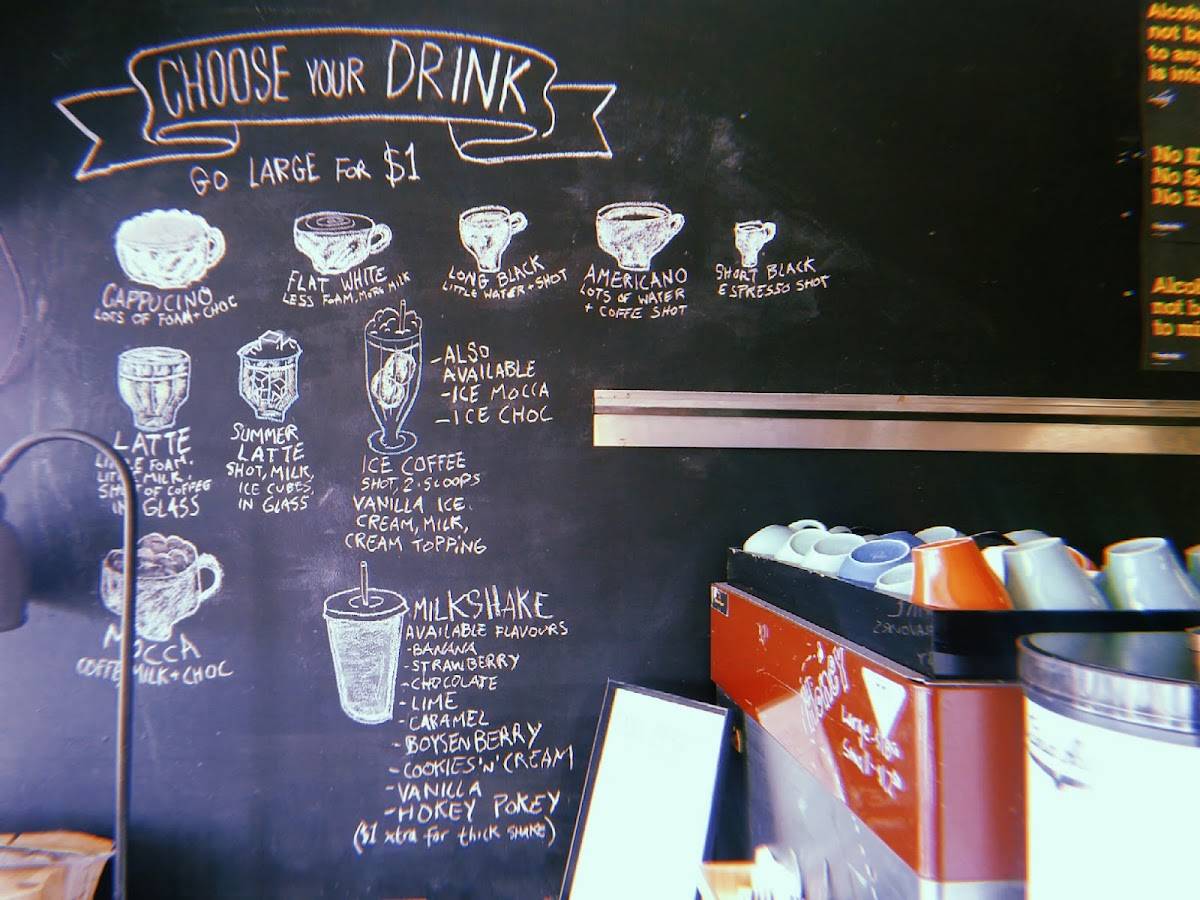 CHOOSE YOUR DRINK
GO LARGE FOR $1
CAPPUCINO
LOTS OF FOAM + CHOC
FLAT WHITE
LESS FOAM, MORE MILK
LONG BLACK
LITTLE WATER + SHOT
AMERICANO
LOTS OF WATER
+ COFFE SHOT
SHORT BLACK
ESPRESSO SHOT
LATTE
FOAM,
MILK,
OF COFFEE
IN GLASS
SUMMER
LATTE
SHOT, MILK,
ICE CUBES,
IN GLASS
-ALSO
AVAILABLE
-ICE MOCCA
-ICE CHOC
ICE COFFEE
SHOT, 2. SCOOPS
VANILLA ICE
CREAM, MILK,
CREAM TOPPING
MOCCA
COFFE MILK + CHOC
MILKSHAKE
AVAILABLE FLAVOURS
-BANANA
-STRAWBERRY
-CHOCOLATE
-LIME
-CARAMEL
-BOYSENBERRY
-COOKIES'N'CREAM
-VANILLA
-HOKEY POKEY
($1 xtra for thick shake)
Honey
Alcoh
not be
to any
is into
No
No
No
Alco
not
to mi